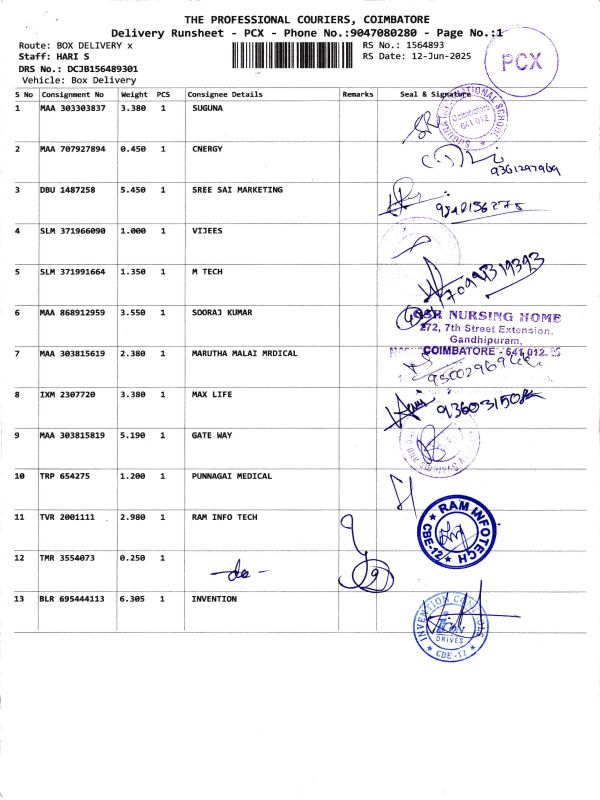 THE PROFESSIONAL COURIERS, COIMBATORE
Delivery Runsheet - PCX - Phone No.:9047080280 - Page No.:1
Route: BOX DELIVERY x
RS No.: 1564893
Staff: HARI S
RS Date: 12-Jun-2025
DRS No.: DCJB156489301
Vehicle: Box Delivery
PCX
S No Consignment No Weight PCS Consignee Details Remarks Seal & Signature
1 MAA 303303837 3.380 1 SUGUNA
SUGUNA INTERNATIONAL SCHOOL
Coimbatore
641 012
2 MAA 707927894 0.450 1 CNERGY
9361297969
3 DBU 1487258 5.450 1 SREE SAI MARKETING
4 SLM 371966090 1.000 1 VIJEES
5 SLM 371991664 1.350 1 M TECH
6 MAA 868912959 3.550 1 SOORAJ KUMAR
NURSING HOME
272, 7th Street Extension,
Gandhipuram,
COIMBATORE - 641 012.
7 MAA 303815619 2.380 1 MARUTHA MALAI MRDICAL
8 IXM 2307720 3.380 1 MAX LIFE
9 MAA 303815819 5.190 1 GATE WAY
10 TRP 654275 1.200 1 PUNNAGAI MEDICAL
11 TVR 2001111 2.980 1 RAM INFO TECH
RAM INFOTECH
CBE-12
12 TMR 3554073 0.250 1 -do-
13 BLR 695444113 6.305 1 INVENTION
INVENTION
DRIVES
CBE-12